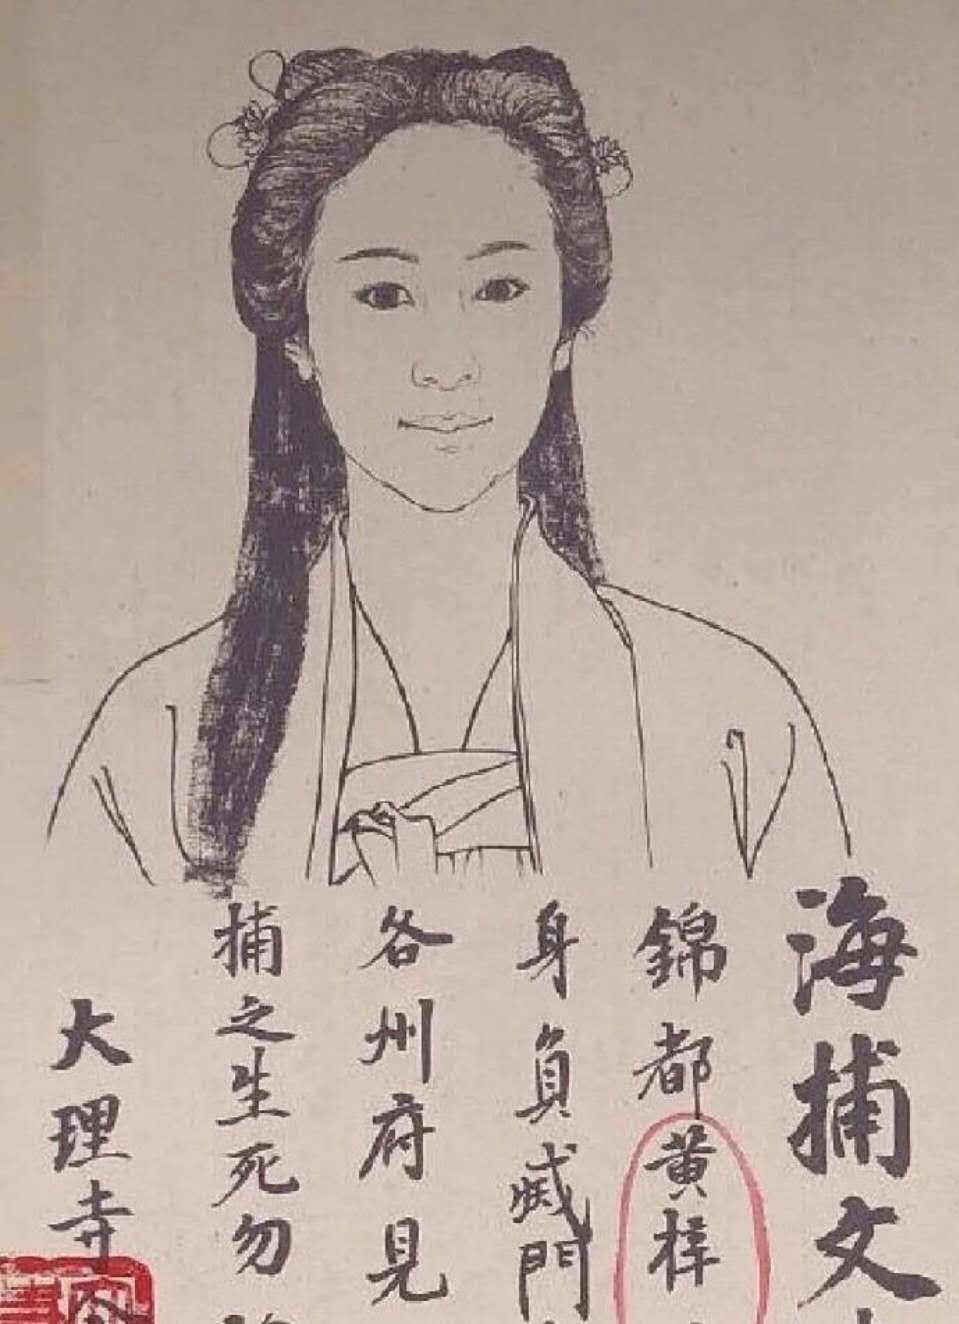 海捕文
錦都黄梓
身負滅門
各州府見
捕之生死勿
大理寺